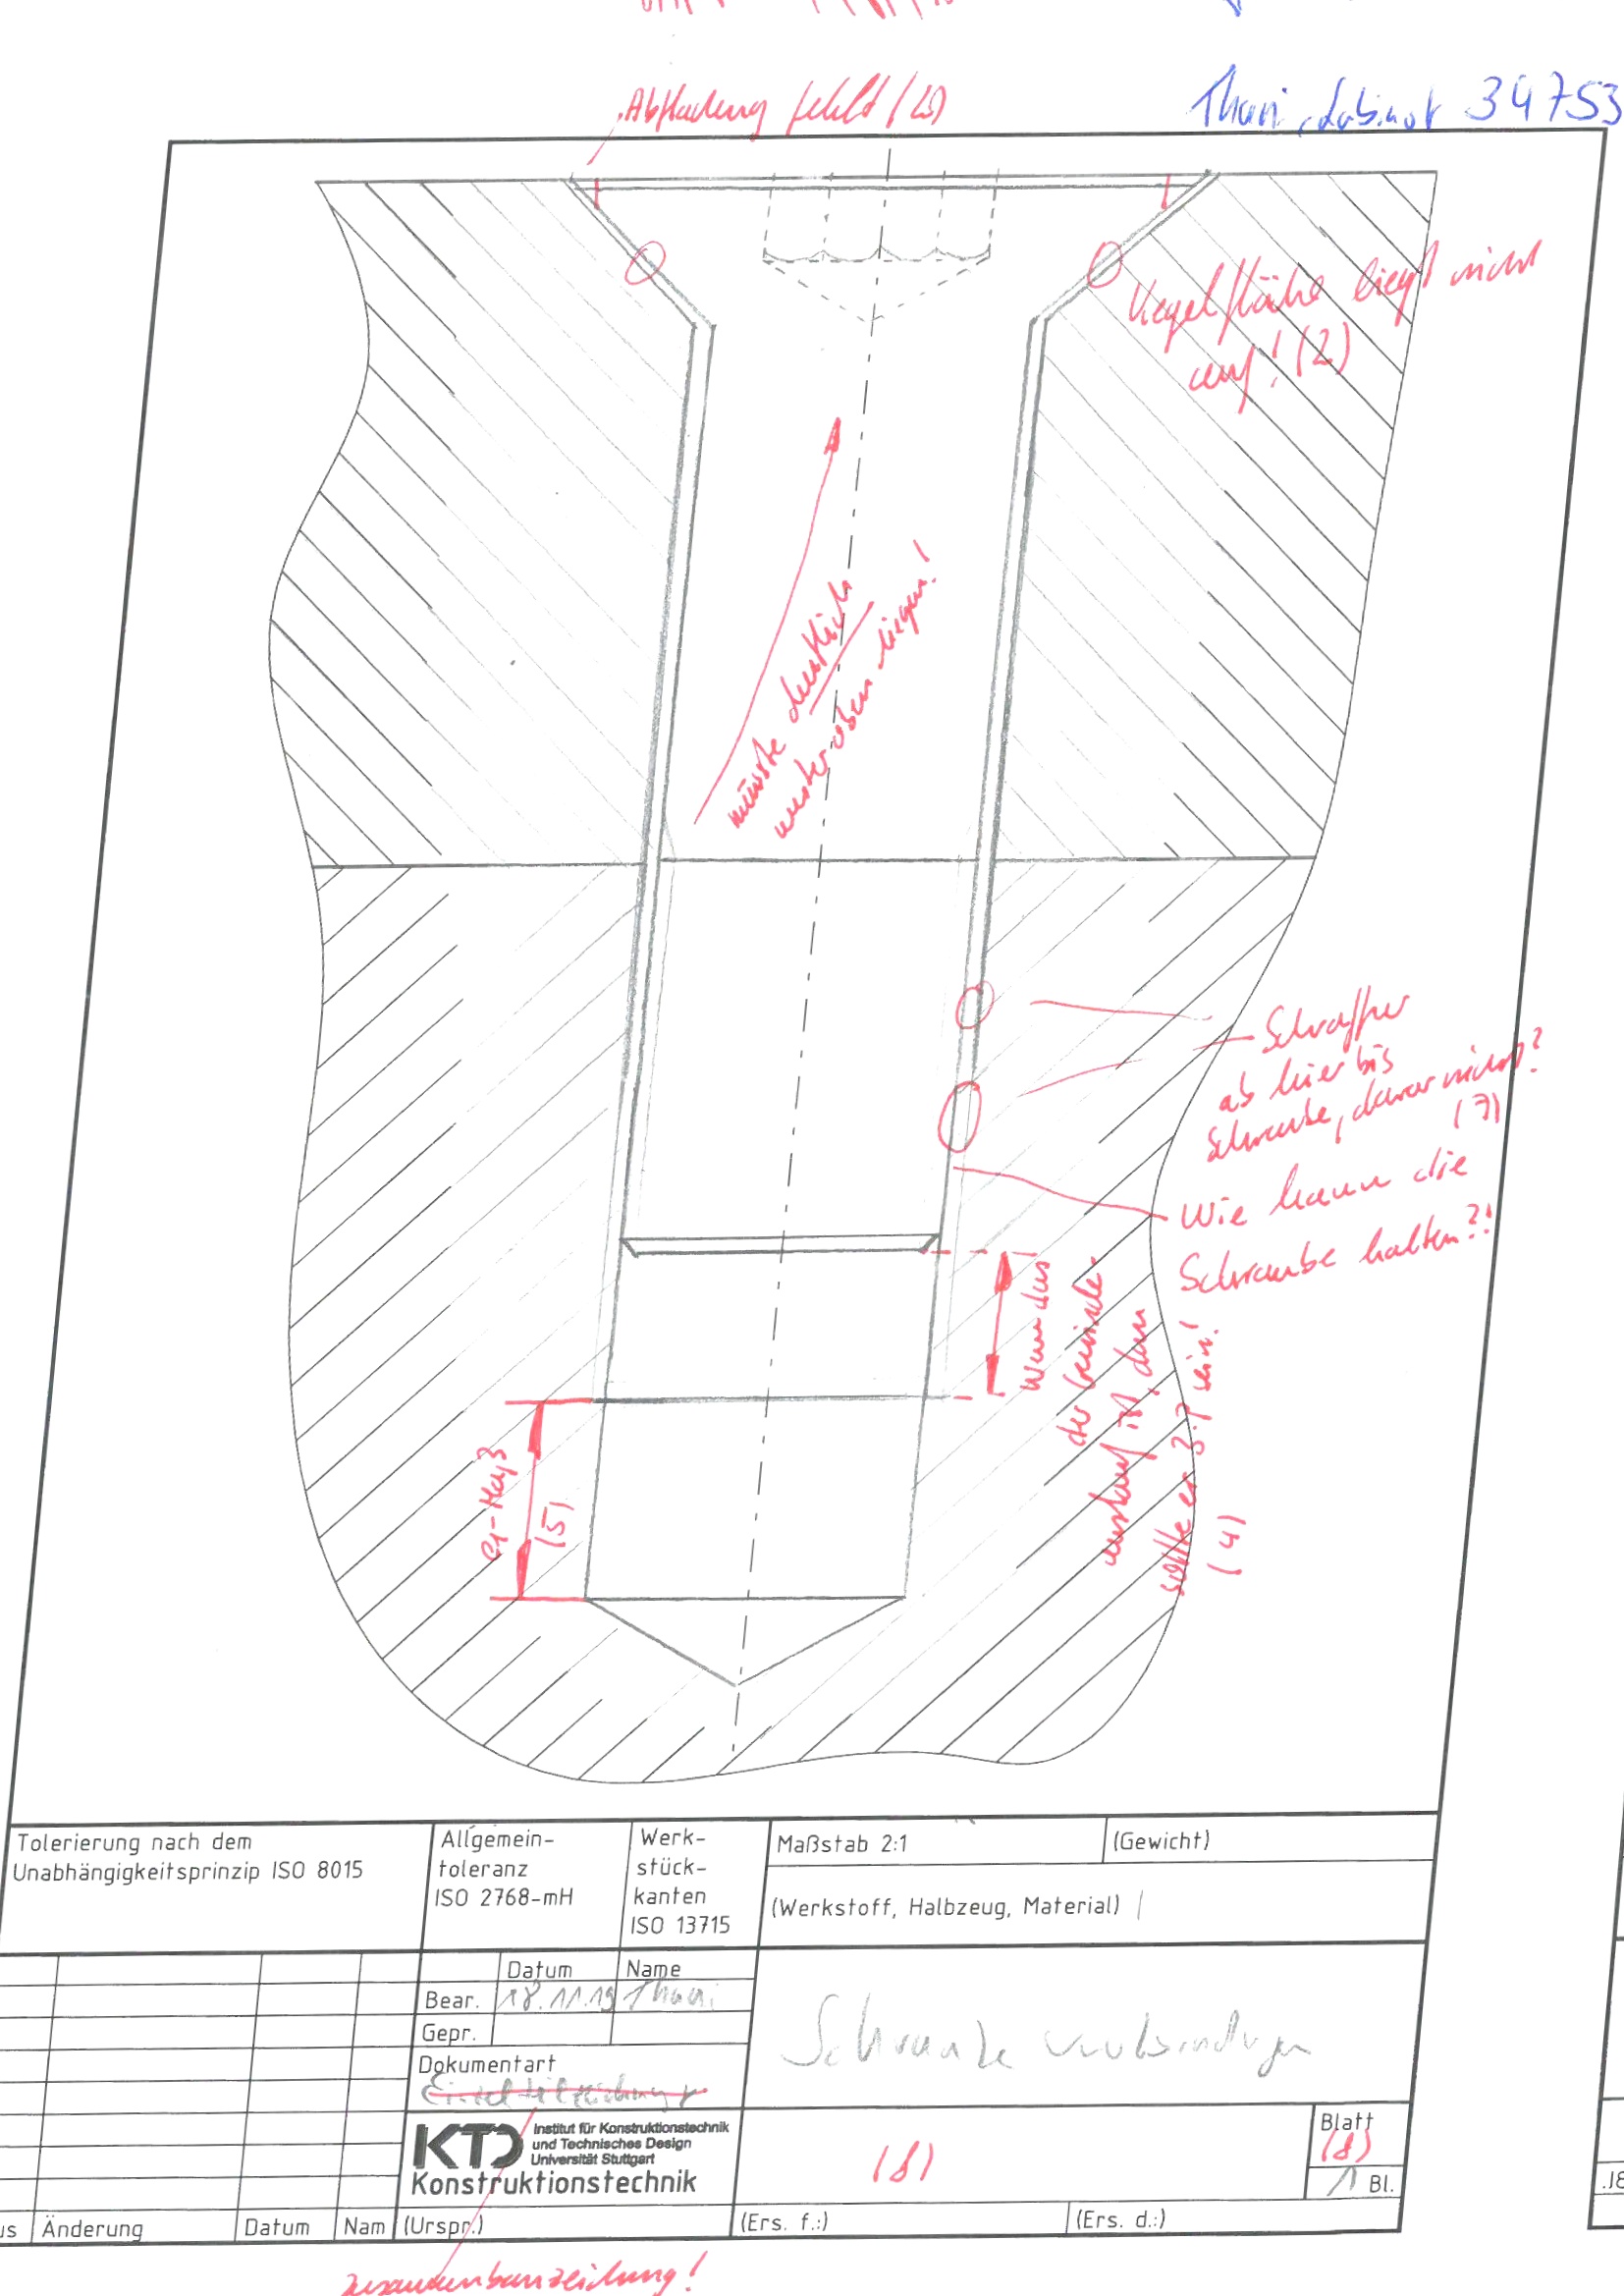 Abflachung fehlt (2)
Thaqi, Labinot 34753
Kegelfläche liegt nicht
auf! (2)
müsste deutlich
weiter oben liegen!
Schraffur
ab hier bis
Schraube, davor nicht?
(7)
Wie kann die
Schraube halten?!
Wenn das
der Gewinde-
auslauf ist, dann
sollte er 3·P sein!
(4)
e1-Maß
(5)
Tolerierung nach dem
Unabhängigkeitsprinzip ISO 8015
Allgemein-
toleranz
ISO 2768-mH
Werk-
stück-
kanten
ISO 13715
Maßstab 2:1
(Gewicht)
(Werkstoff, Halbzeug, Material)
Datum Name
Bear. 18.11.19 Thaqi
Gepr.
Dokumentart
Einzelteilzeichnung
Schraubverbindungen
KTD Institut für Konstruktionstechnik
und Technisches Design
Universität Stuttgart
Konstruktionstechnik
(8)
Blatt
(8)
1 Bl.
Änderung Datum Nam (Urspr.) (Ers. f.:) (Ers. d.:)
Zusammenbauzeichnung!